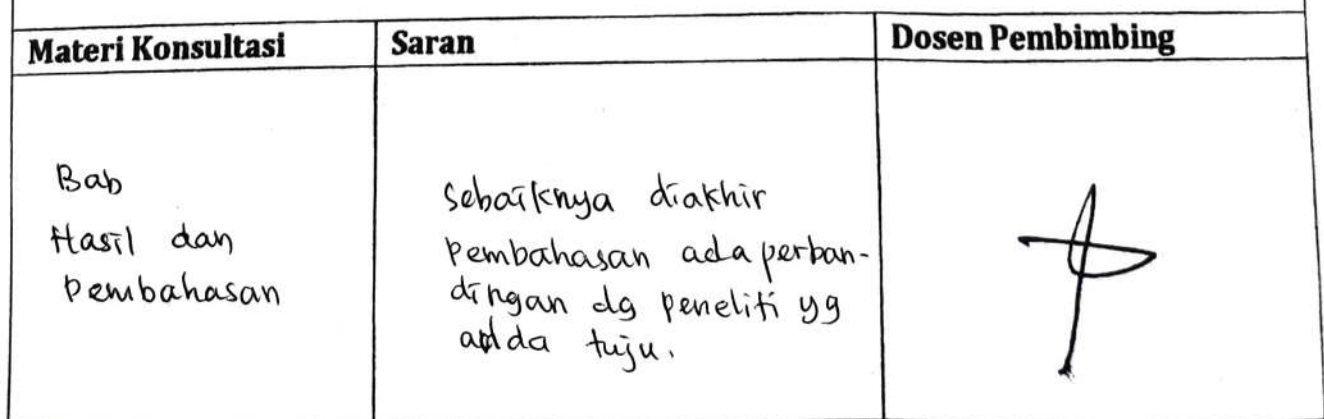 Materi Konsultasi
Saran
Dosen Pembimbing
Bab
Hasil dan
Pembahasan
Sebaiknya diakhir
Pembahasan ada perban-
dingan dg peneliti yg
anda tuju.